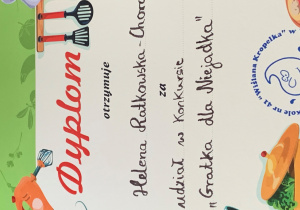 Dyplom
otrzymuje
Helena Ratkowska-Chora
za
udział w konkursie
"Gratka dla Niejadka"
"Wiślana Kropelka" w
nr 41